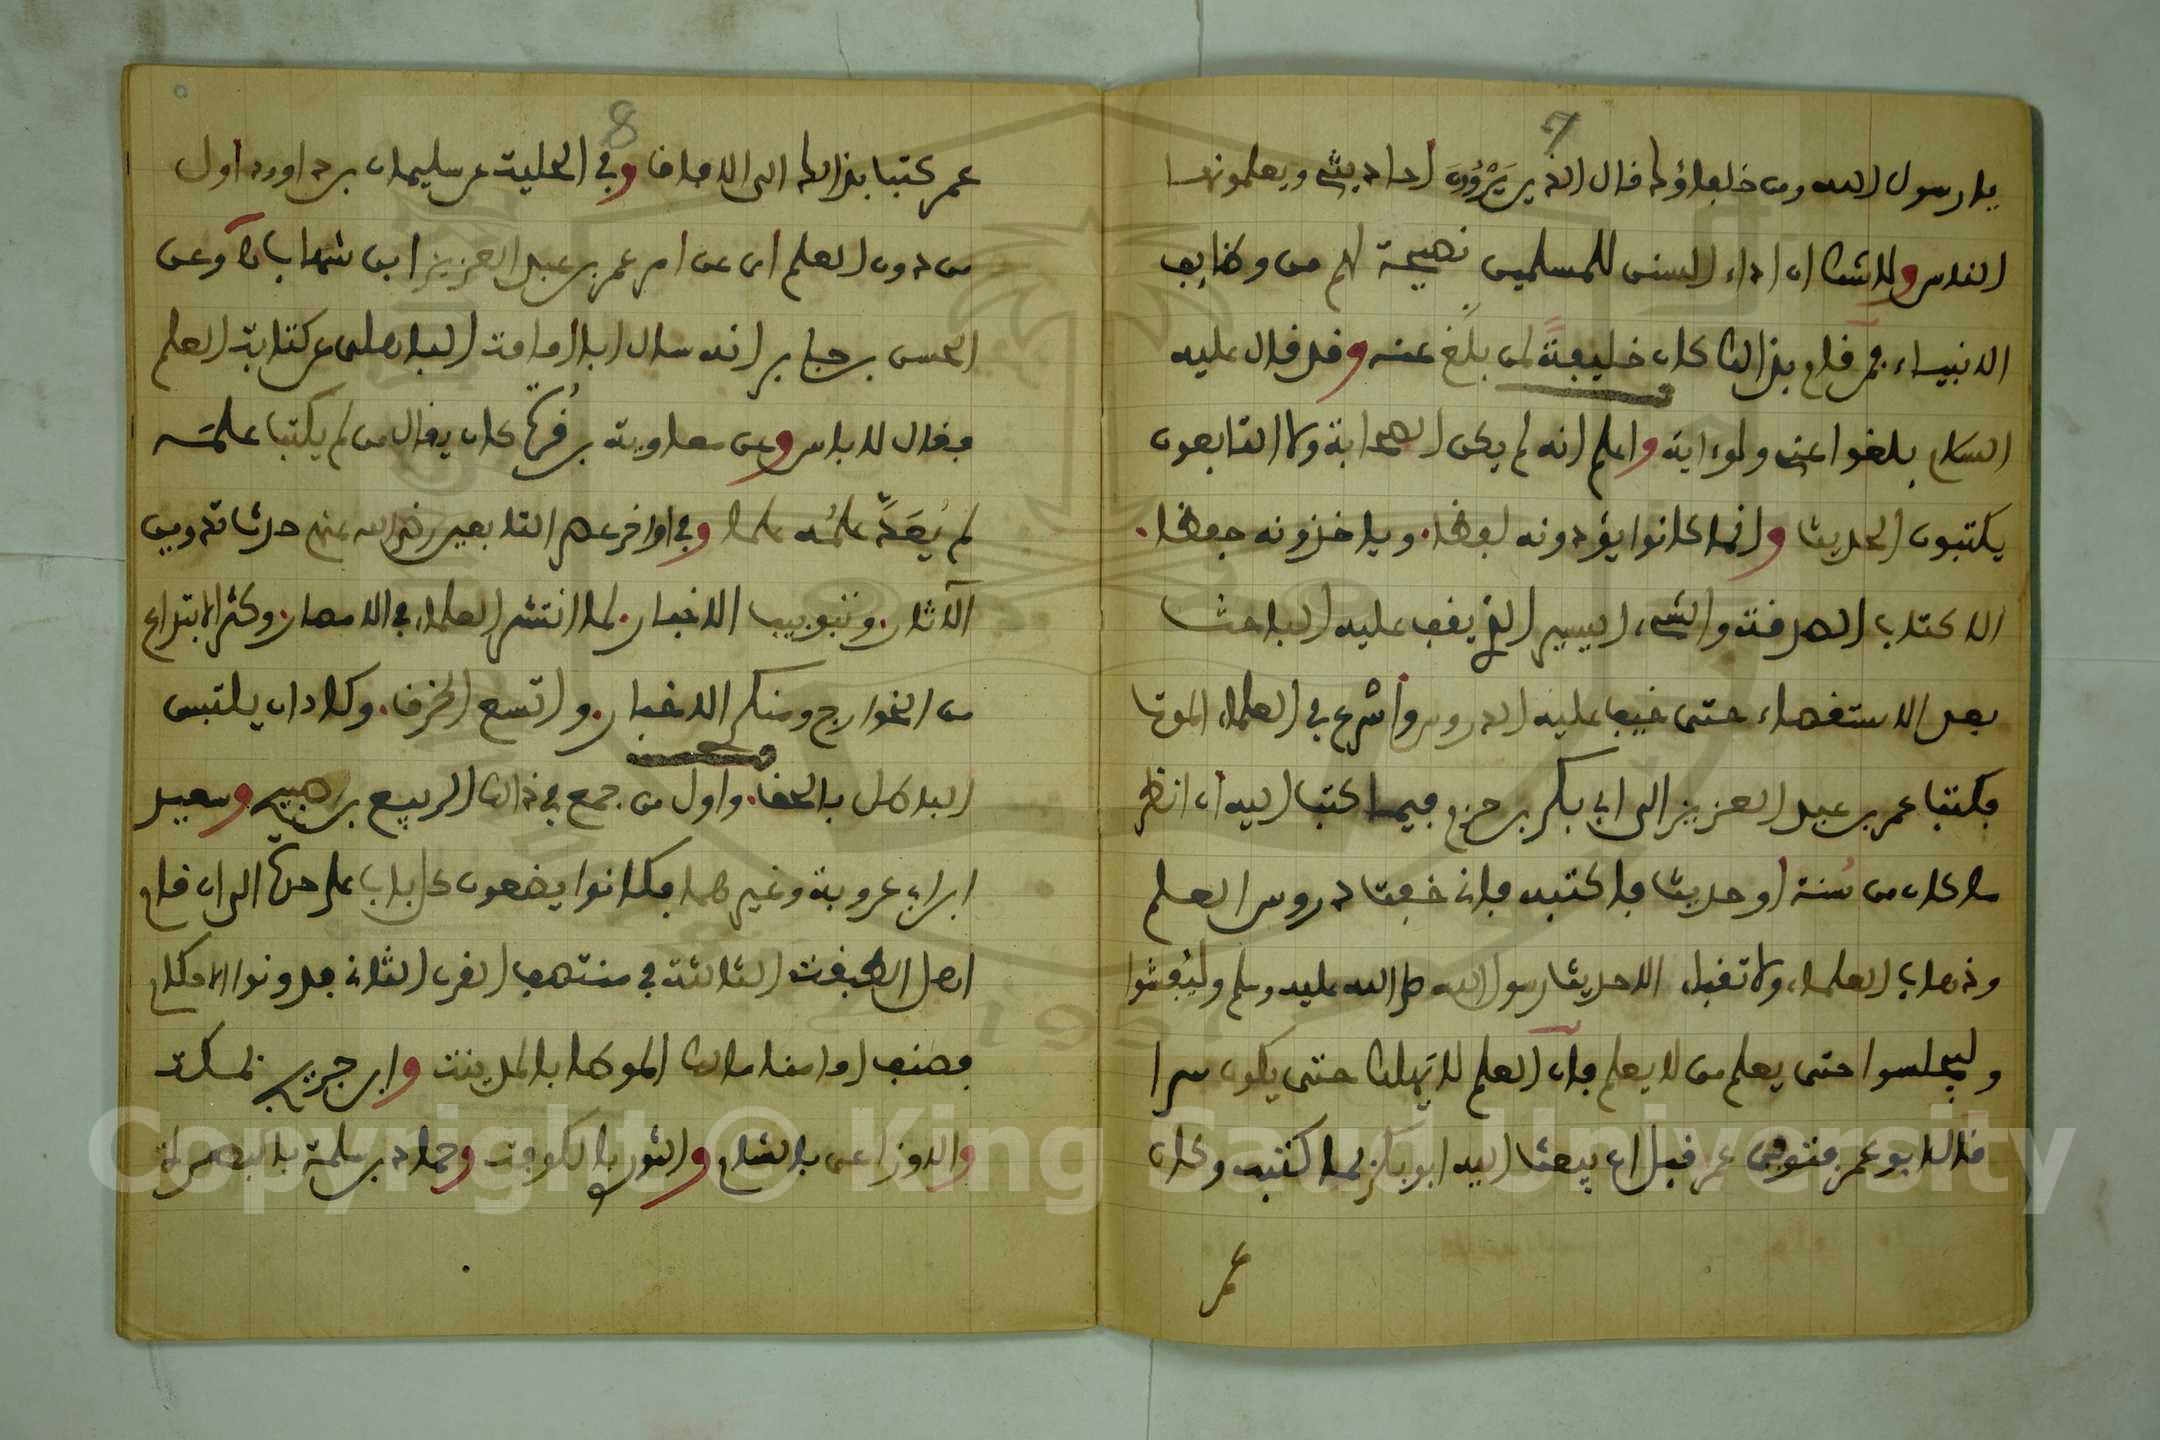 7
يا رسول الله ومن خلفاؤك قال الذين يَرْوُونَ احاديثي ويعلمونها
الناس ولا شك ان اداء السنن للمسلمين نصيحة لهم من وظايف
الانبياء فمن قام بذالك كان خليفة لمن بلّغ عنه وقد قال عليه
السلام بلغوا عني ولو ءاية واعلم انه لم يكن الصحابة ولا التابعون
يكتبون الحديث وانما كانوا يؤدونه لفظا. وياخذونه حفظا.
الا كتاب الصدقة والشيء اليسير الذي يقف عليه الباحث
بعد الاستقصاء حتى خيف عليه الدروس واسرع في العلماء الموت
فكتب عمر بن عبد العزيز الى ابي بكر بن حزم فيما كتب اليه ان انظر
ما كان من سُنة او حديث فاكتبه فاني خفت دروس العلم
وذهاب العلماء، ولا تقبل الا حديث رسول الله صلى الله عليه وسلم وليُفشوا
وليجلسوا حتى يعلم من لا يعلم فان العلم لا يَهلك حتى يكون سرا
قال ابو عمر فتوفي عمر قبل ان يبعث اليه ابو بكر بما كتبه وكان
عمر
8
عمر كتب بذالك الى الافاق وفي الحلية عن سليمان بن داود اول
من دون العلم اي عن امر عمر بن عبد العزيز ابن شهاب وعن
الحسن بن جابر انه سال ابا امامة الباهلي عن كتابة العلم
فقال لا باس وعن معاوية بن قُرّة كان يقال من لم يكتب علمَه
لم يُعَدَّ علمُه علما وفي اواخر عصر التابعين رضي الله عنهم حدث تدوين
الآثار. وتبويب الاخبار. لما انتشر العلماء في الامصار. وكثر الابتداع
من الخوارج ومنكر الاخبار. واتسع الخرق. وكاد ان يلتبس
الباطل بالحق. واول من جمع في ذالك الربيع بن صبيح وسعيد
ابن ابي عروبة وغيرهما فكانوا يضعون كل باب على حدة الى ان قام
اهل الطبقة الثالثة في منتصف القرن الثاني فدونوا الاحكام
فصنف امامنا مالك الموطا بالمدينة وابن جريج بمكة
والاوزاعي بالشام والثوري بالكوفة وحماد بن سلمة بالبصرة
Copyright © King Saud University
1957